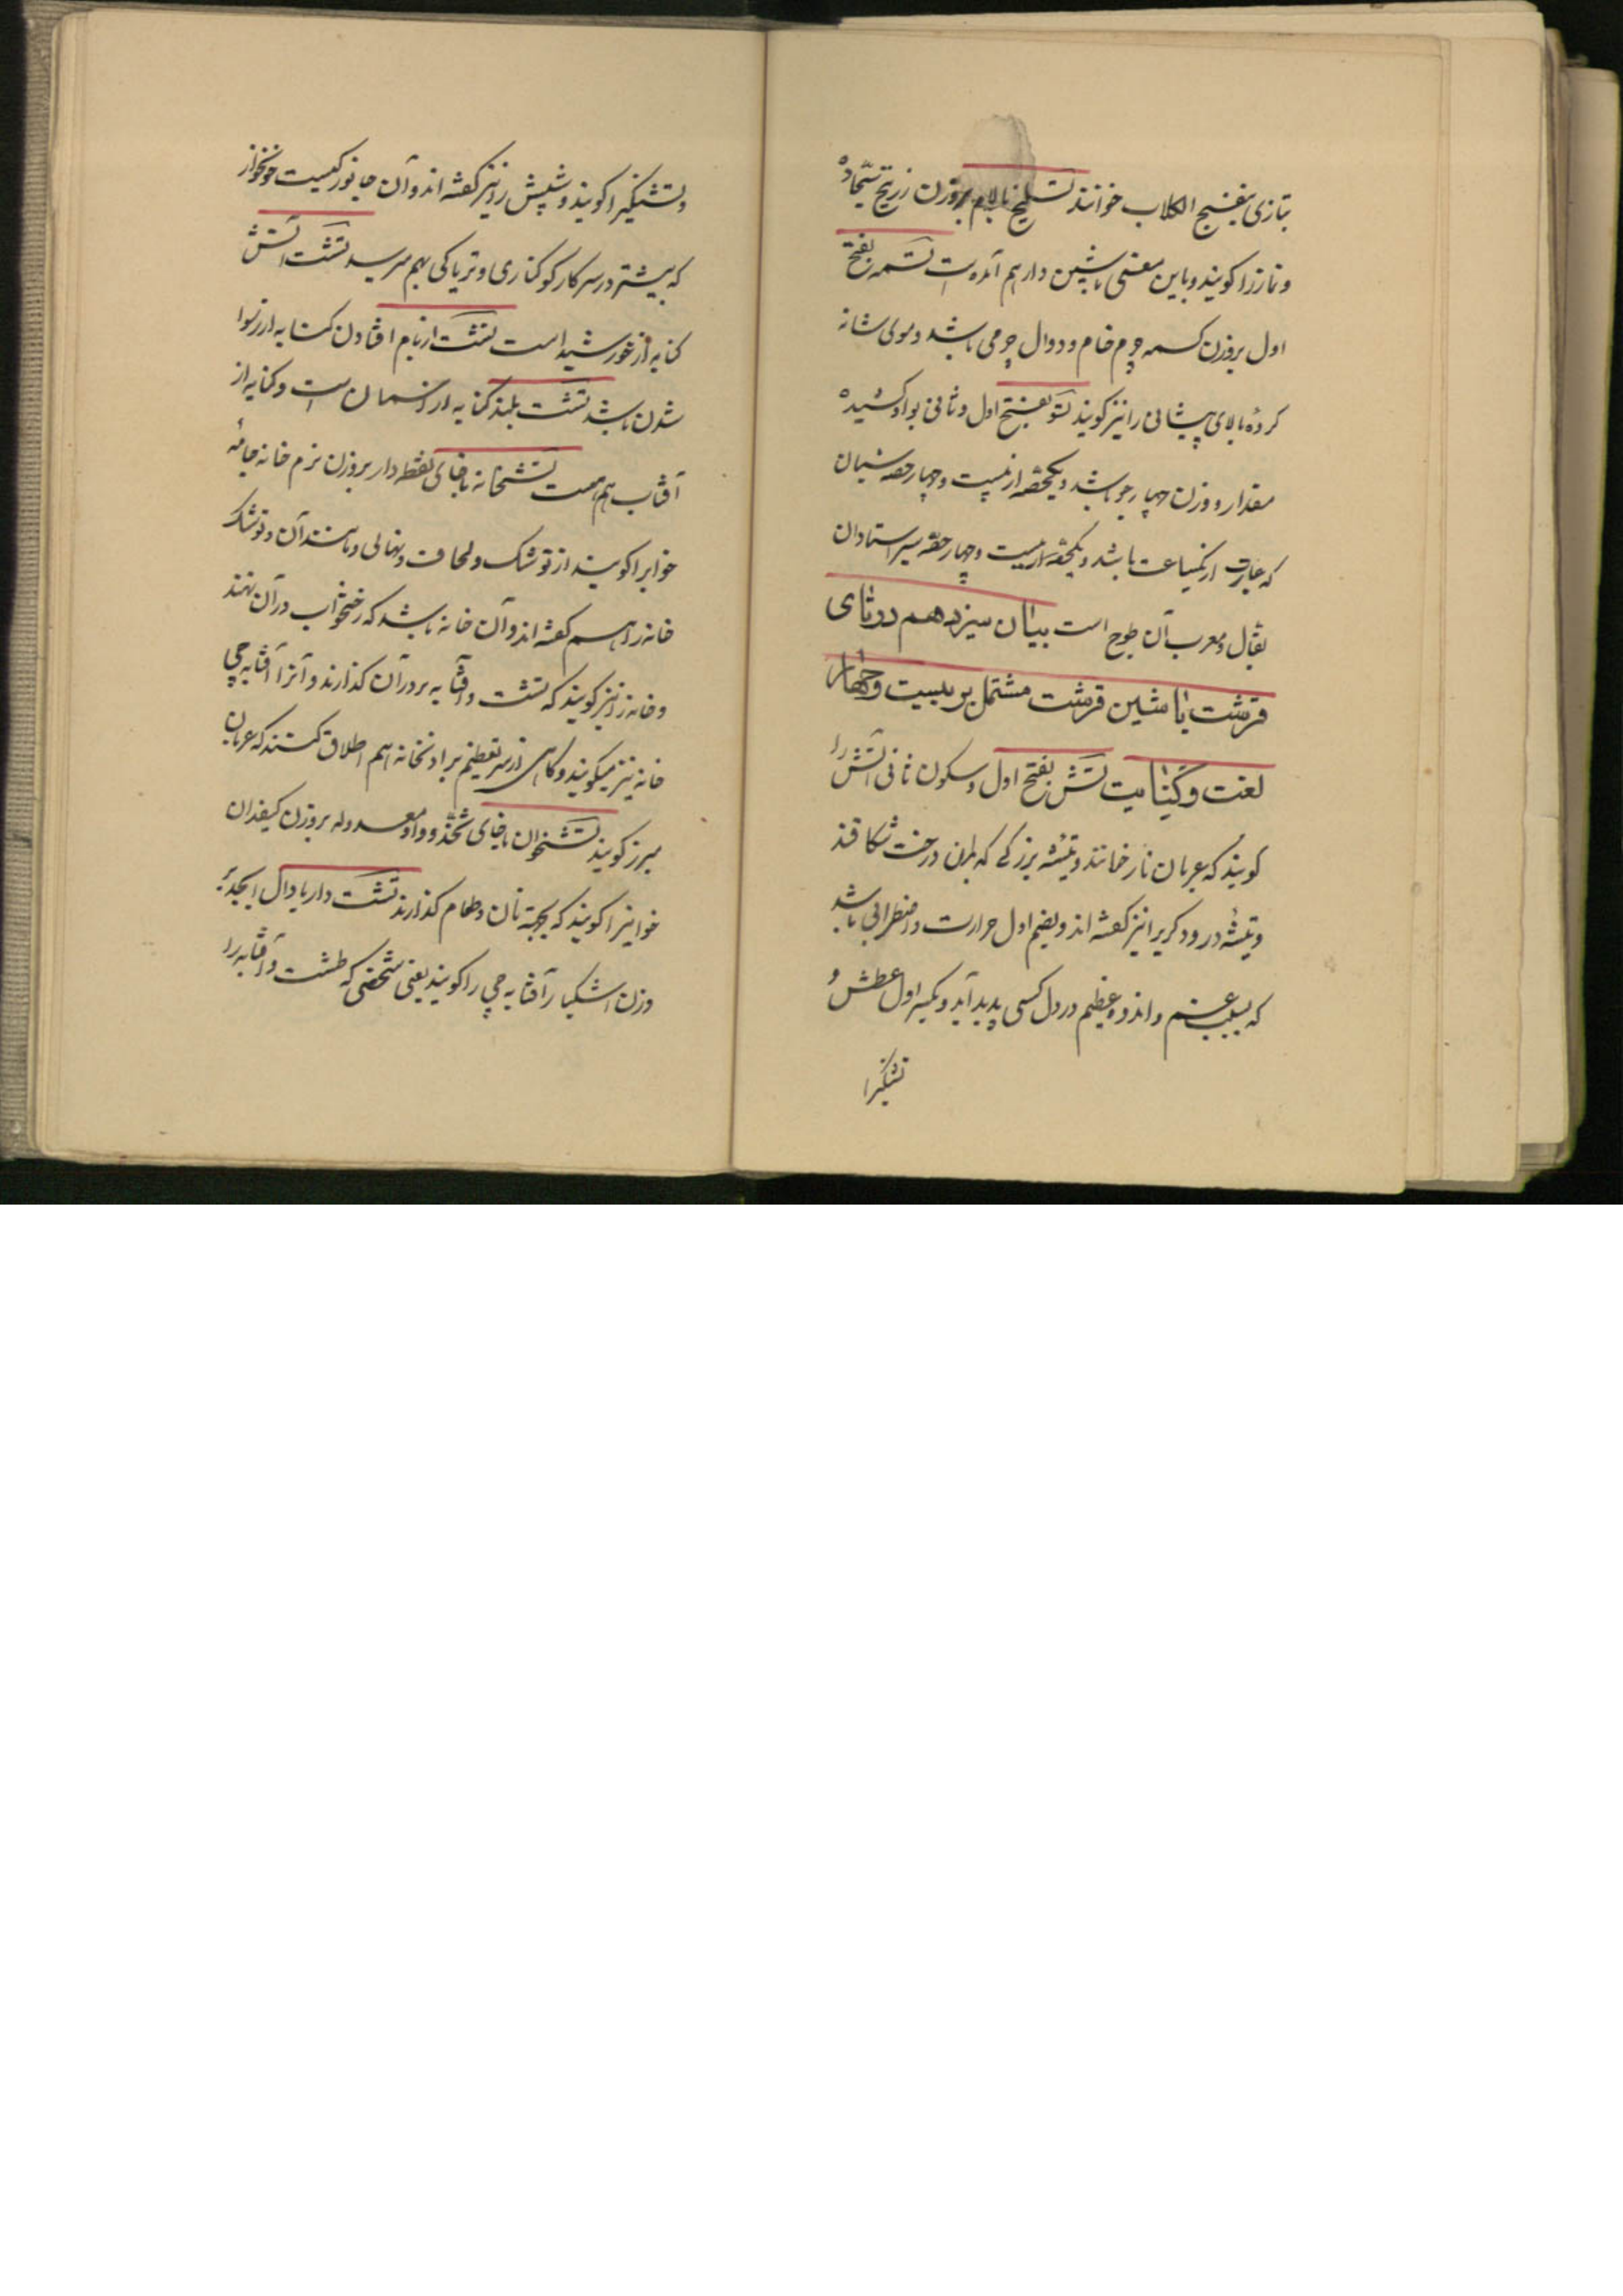 بتازی بنفسج الکلاب خوانند تسلیخ بالام بروزن زرنیخ سجاده
و نماز را کویند و باین معنی با شین دار هم آمده است تسمه بفتح
اول بروزن کسمه چرم خام و دوال چرمی باشد و موی شانه
کرده بالای پیشانی را نیز کویند تسو بفتح اول و ثانی بواو کشیده
مقدار و وزن چهار جو باشد و یکحصه از بیست و چهار حصه شبان
که عبارت از یکساعت باشد و یکحصه از بیست و چهار حصه سیر استادان
بقال و معرب آن طسوج است بیان سیزدهم در تای
قرشت با شین قرشت مشتمل بر بیست و چهار
لغت و کنایت تش بفتح اول و سکون ثانی آتش را
کویند که عربان نار خوانند و تیشه بزرکی که بدان درخت شکافند
و تیشه درودکری را نیز کفته اند و بضم اول حرارت و اضطرابی باشد
که بسبب غم و اندوه عظیم در دل کسی پدید آید و بکسر اول عطش و
تشنکی را
و تشنکی را کویند و شپش را نیز کفته اند و آن جانورکیست خونخوار
که بیشتر در سر کار کوکناری و تریاکی بهم میرسد تشت آتش
کنایه از خورشید است تشت از بام افتادن کنایه از رسوا
شدن باشد تشت بلند کنایه از آسمان است و کنایه از
آفتاب هم هست تشتخانه با خای نقطه دار بروزن نرم خانه جامه
خواب را کویند از توشک و لحاف و نهالی و مانند آن و توشک
خانه را هم کفته اند و آن خانه باشد که رختخواب در آن نهند
و خانه را نیز کویند که تشت و آفتابه در آن کذارند و آنرا آفتابه چی
خانه نیز میکویند و کاهی از سر تعظیم بر ادبخانه هم اطلاق کنند که عربان
مبرز کویند تشتخوان با خای ثخذ و واو معدوله بروزن کیفدان
خوانیرا کویند که بجهة نان و طعام کذارند تشت دار با دال ابجد بر
وزن اشکبار آفتابه چی را کویند یعنی شخصی که طشت و آفتابه را